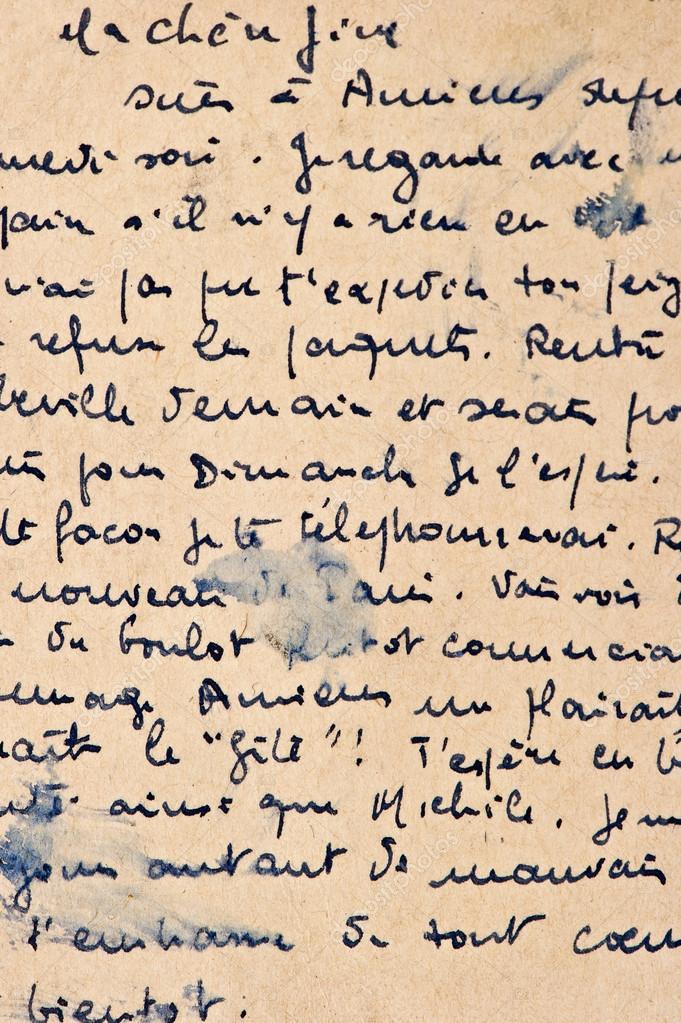 Ma chère
suis à Amiens
soir. Je regarde avec
s'il n'y a rien en
n'ai pas pu t'expédier ton
refuse les paquets. Rentre
beville demain et serai
pour Dimanche je l'espère.
façon je te téléphonerai. R
nouveau de Paris. Vais voir
du boulot plutôt commercia
Amiens me plairait
le "gîte"! T'espère en
ainsi que Michèle. Je
autant de mauvais
t'embrasse de tout coeu
bientot.